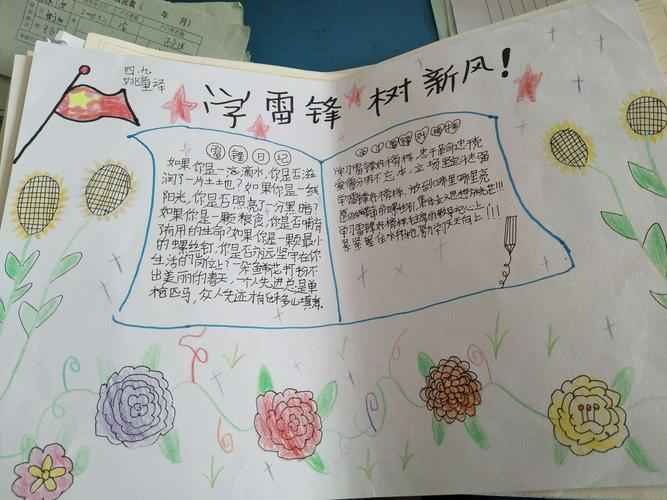 四.九
学雷锋 树新风！
雷锋日记
如果你是一滴水，你是否滋
润了一片土地？如果你是一线
阳光，你是否照亮了一分黑暗？
如果你是一颗粮食，你是否哺育
了有用的生命？如果你是一颗最小
的螺丝钉，你是否永远坚守在你
生活的岗位上？一朵鲜花打扮不
出美丽的春天，一人先进总是单
枪匹马，众人先进才能移山填海
学习雷锋好榜样
学习雷锋好榜样，忠于革命忠于党
爱憎分明不忘本，立场坚定斗志强
学习雷锋好榜样，放到哪里哪里亮
愿做革命的螺丝钉，集体主义思想放光芒!!!
学习雷锋好榜样